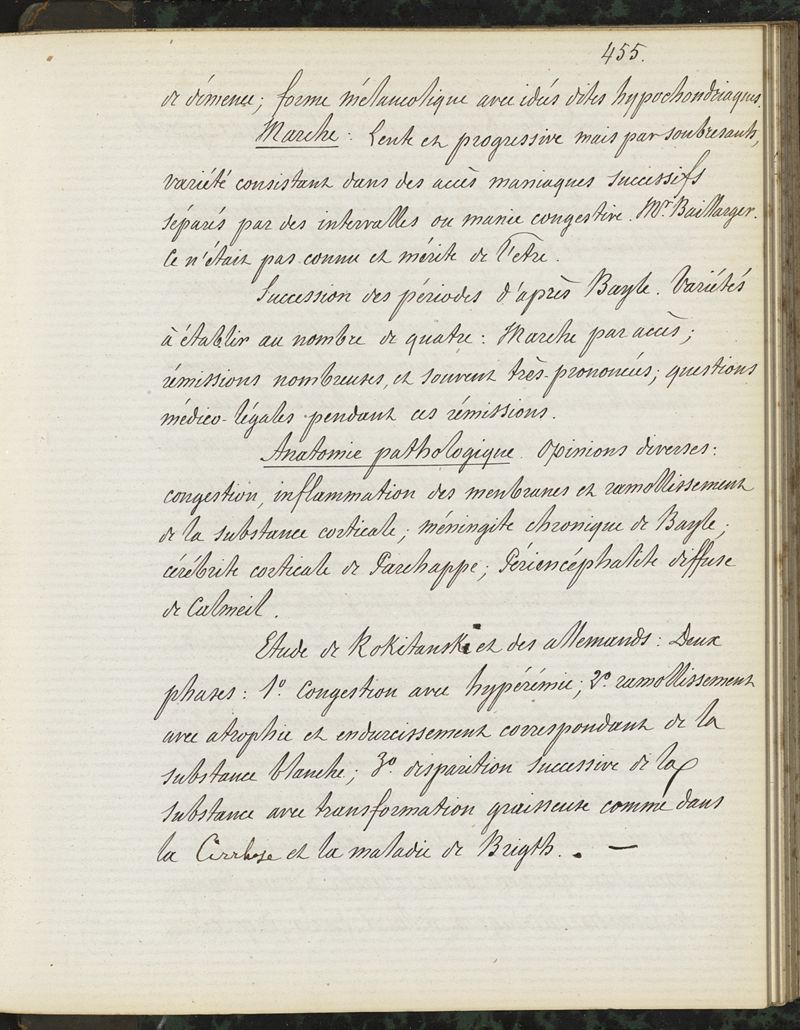 455.
de démence; forme mélancolique avec idées dites hypochondriaques.
Marche : Lente et progressive mais par soubresauts,
variété consistant dans des accès maniaques successifs
séparés par des intervalles ou manie congestive. Mr. Baillarger.
Ce n'était pas connu et mérite de l'être.
Succession des périodes d'après Bayle. Variétés
à établir au nombre de quatre : Marche par accès;
rémissions nombreuses, et souvent très-prononcées; questions
médico-légales pendant ces rémissions.
Anatomie pathologique. Opinions diverses :
congestion, inflammation des menbranes et ramollissement
de la substance corticale; méningite chronique de Bayle;
cérébrite corticale de Parchappe; Périencéphalite diffuse
de Calmeil.
Etude de Rokitanski et des allemands : Deux
phases : 1º Congestion avec hypérémie; 2º ramollissement
avec atrophie et endurcissement correspondant de la
substance blanche; 3º disparition successive de la
substance avec transformation graisseuse comme dans
la Cirrhose et la maladie de Brigth. —